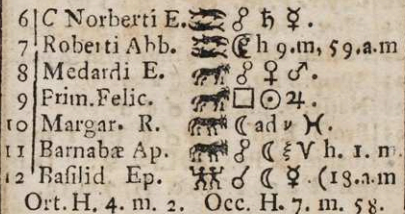 6 C Norberti E. ♓ ☍ ♄ ☿.
7 Roberti Abb. ♓ ☾ h 9.m, 59.a.m
8 Medardi E. ♈ ☍ ♀ ♂.
9 Prim.Felic. ♈ □ ☉ ♃.
10 Margar. R. ♉ ☾ ad ν ♓.
11 Barnabæ Ap. ♉ ☍ ☾ ξ ♈ h. 1. m.
12 Basilid Ep. ♊ ☌ ☾ ☿. (18.a.m
Ort. H. 4. m. 2. Occ. H. 7. m. 58.